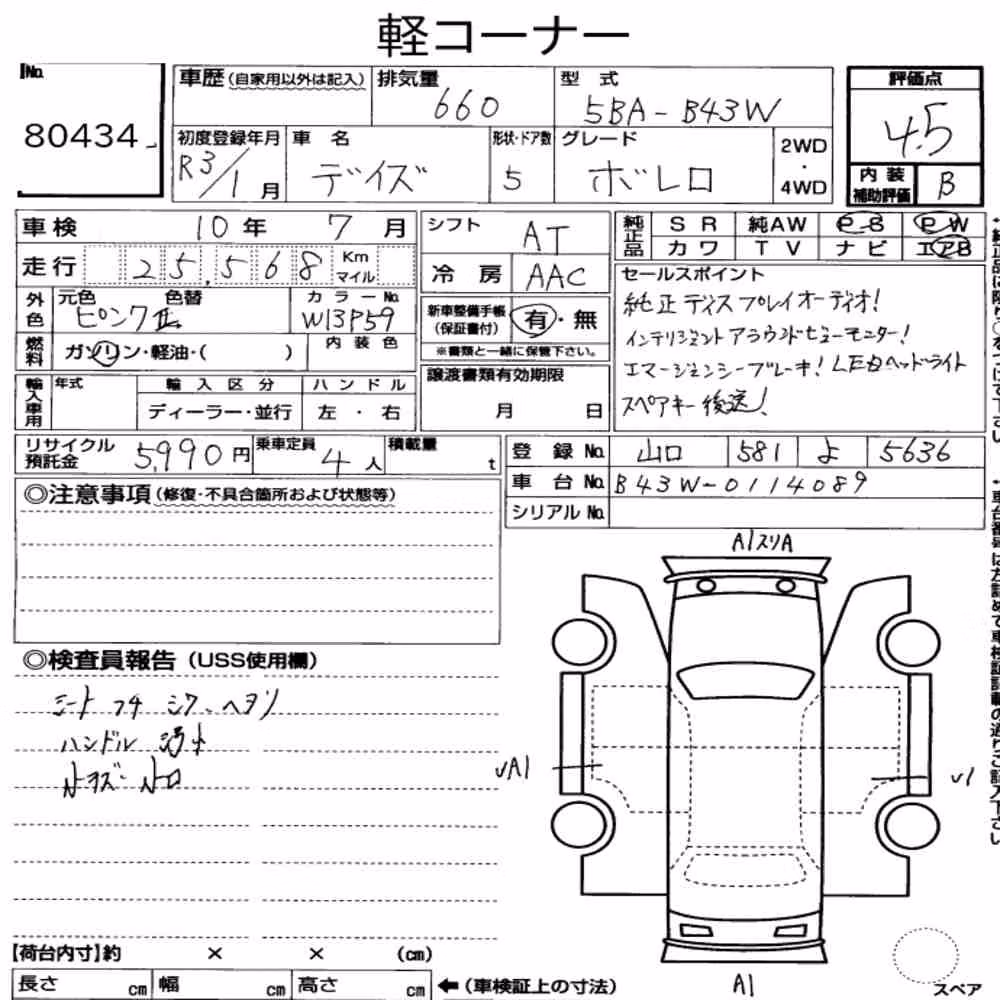 軽コーナー
No.
80434
車歴(自家用以外は記入)
排気量
660
型 式
5BA-B43W
評価点
4.5
初度登録年月
R3/1月
車 名
デイズ
形状・ドア数
5
グレード
ボレロ
2WD
・
4WD
内 装
補助評価
B
車検 10年 7月
走行 25,568 Km
マイル
シフト AT
冷 房 AAC
純正品
SR 純AW PS PW
カワ TV ナビ エアB
セールスポイント
純正ディスプレイオーディオ!
インテリジェント アラウンドビューモニター!
エマージェンシーブレーキ! LEDヘッドライト
スペアキー後送!
外色
元色 色替
ピンクII
カラーNo.
W13P59
新車整備手帳
(保証書付)
有・無
※書類と一緒に保管下さい。
燃料
ガソリン・軽油・( )
内 装 色
輸入車用
年式
輸 入 区 分
ディーラー・並行
ハ ン ド ル
左 ・ 右
譲渡書類有効期限
月 日
リサイクル
預託金
5,990円
乗車定員
4人
積載量
t
登 録 No. 山口 581 よ 5636
車 台 No. B43W-0114089
シリアル No.
◎注意事項(修復・不具合箇所および状態等)
◎検査員報告(USS使用欄)
シート フケ シワ ヘヨリ
ハンドル
A1スリA
UA1
U1
A1
【荷台内寸】約 × × (cm)
長さ cm 幅 cm 高さ cm
←(車検証上の寸法)
スペア